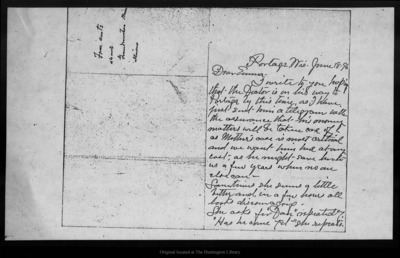 Four cents
Portage, Wis. June 18 96
Dear Emma,
I write to you hoping
that the Doctor is on his way to
Portage by this time, as I have
just sent him a telegram with
the assurance that his money
matters will be taken care of
as Mother's case is most critical
and we want him here at any
cost; as he might save her to
us a few years when no one
else can.
Sometimes she seems a little
better and in a few hours all
looks discouraging.
She asks for "Dan" repeatedly.
"Has he come yet" she repeats.
Original located at The Huntington Library